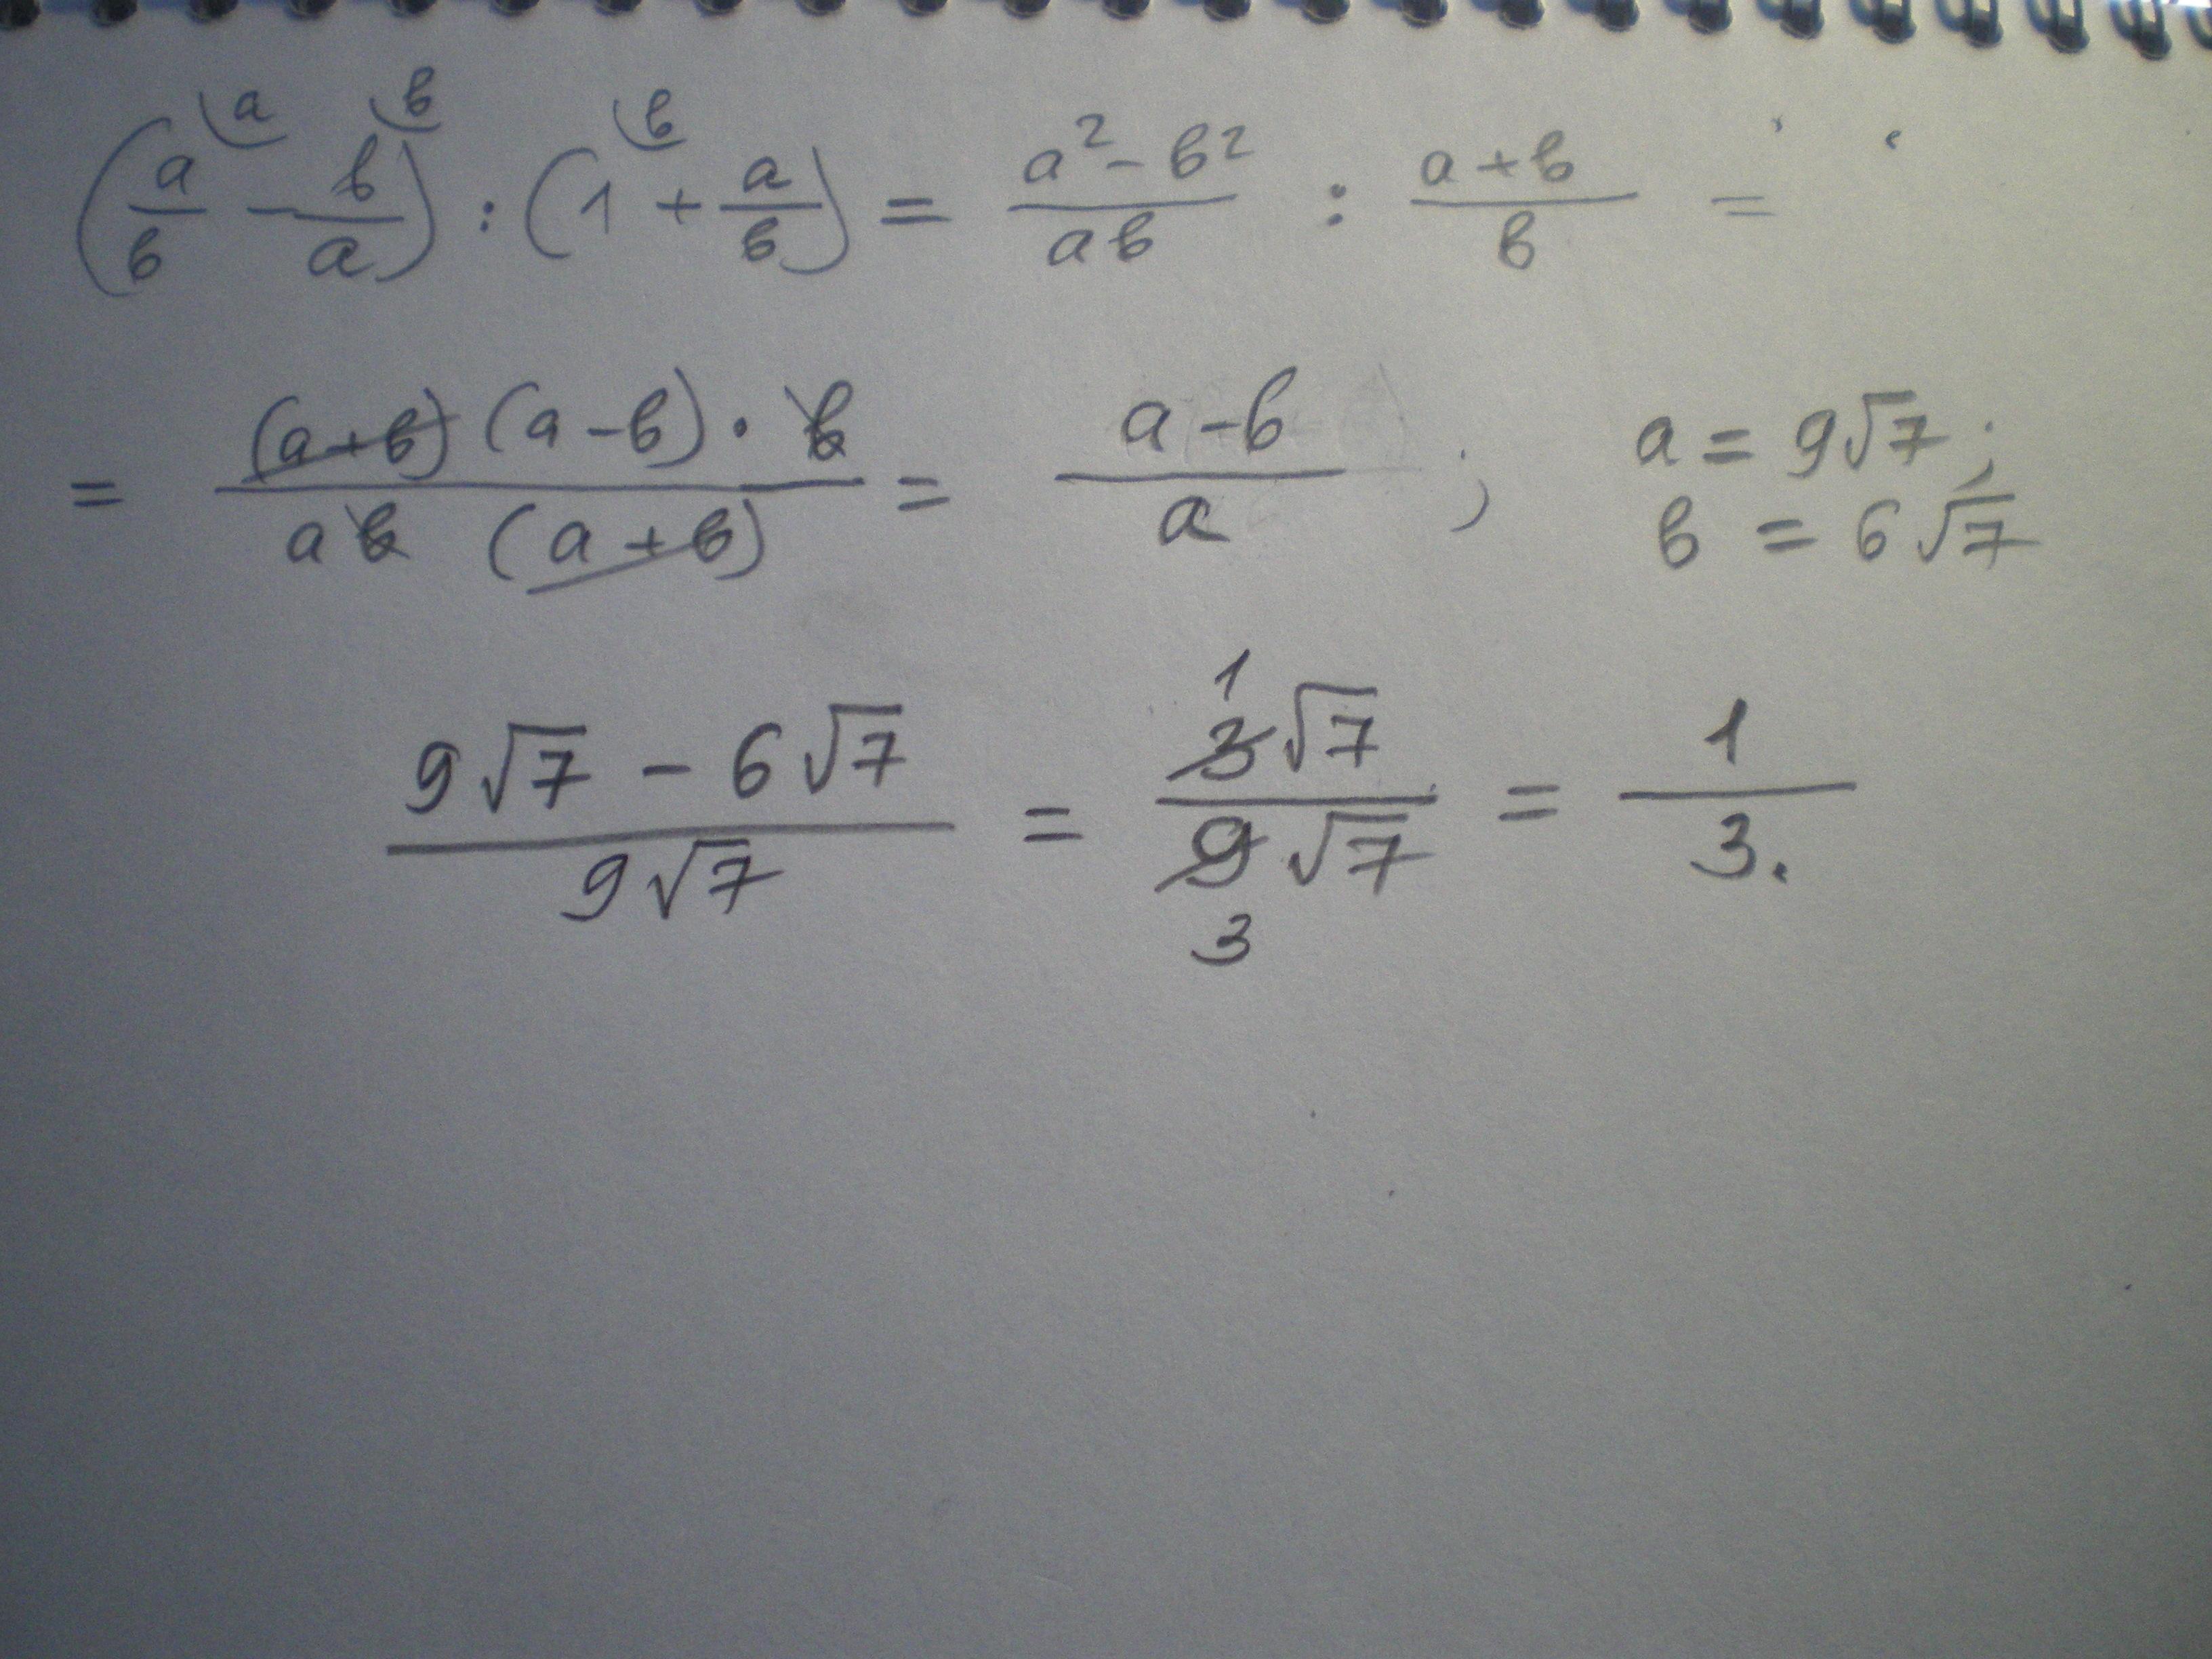 (a/b \a - b/a \b) : (1 \b + a/b) = (a² - b²)/(ab) : (a + b)/b =
= ((a+b)(a-b)·b)/(ab (a+b)) = (a-b)/a ; a = 9√7; b = 6√7
(9√7 - 6√7)/(9√7) = (3√7)/(9√7) 1 3 = 1/3.